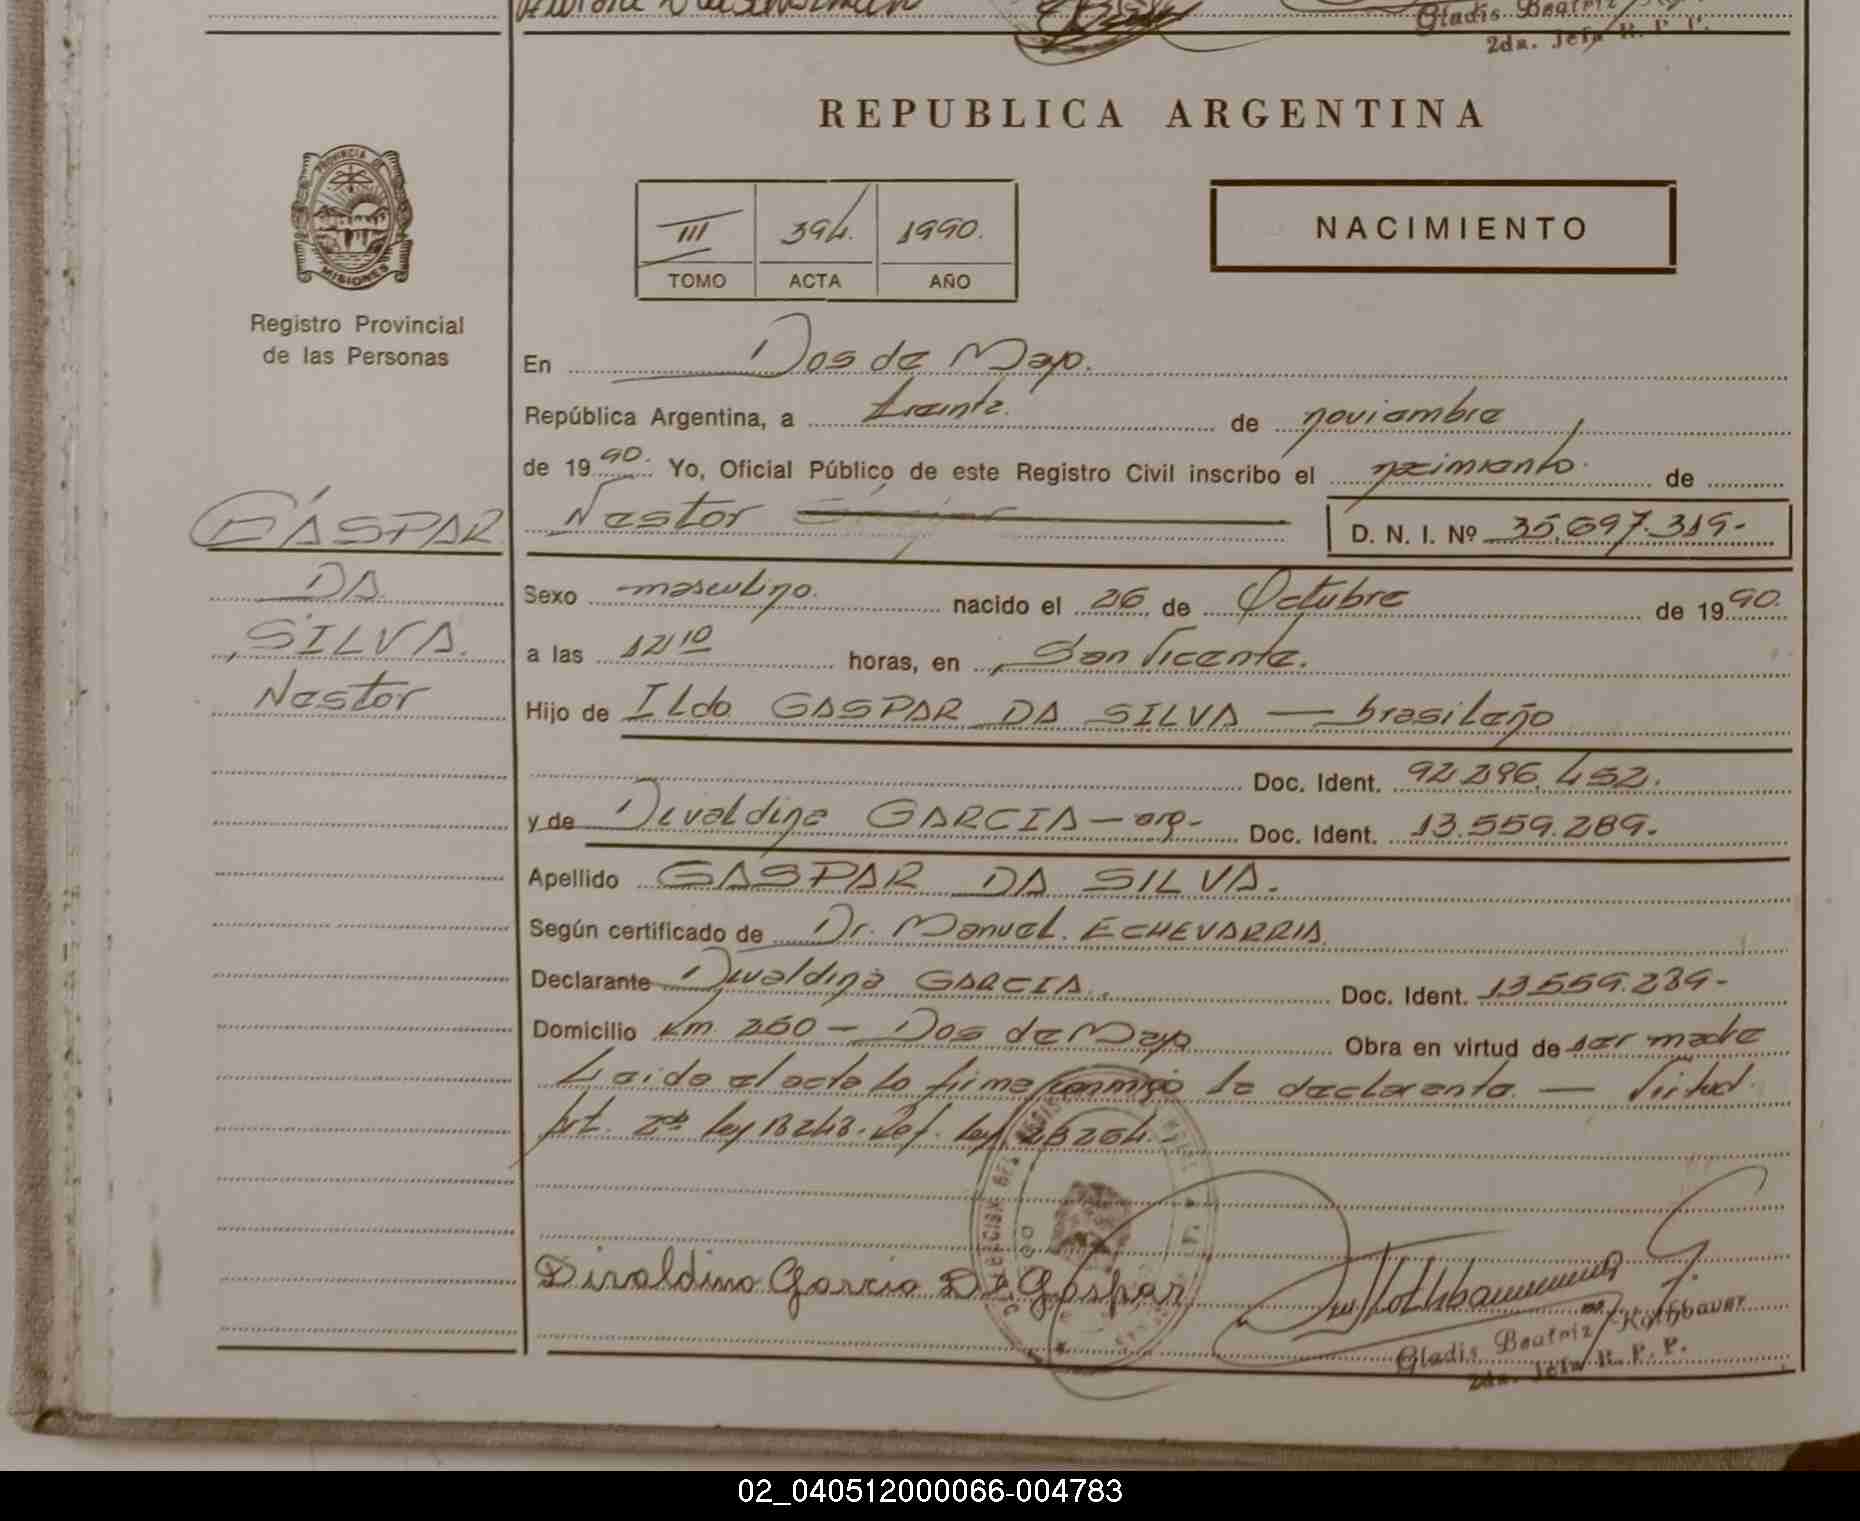 Gladis Beatriz
2da. Jefa R. P. P.
REPUBLICA ARGENTINA
PROVINCIA DE
MISIONES
Registro Provincial
de las Personas
III 394. 1990.
TOMO ACTA AÑO
NACIMIENTO
En Dos de Mayo.
República Argentina, a treinta. de noviembre
de 1990. Yo, Oficial Público de este Registro Civil inscribo el nacimiento. de
Nestor D. N. I. Nº 35.697.319.-
GASPAR
DA
SILVA.
Nestor
Sexo masculino. nacido el 26 de Octubre de 1990.
a las 12 10 horas, en San Vicente.
Hijo de Ildo GASPAR DA SILVA — brasileño
Doc. Ident. 92.296.452.
y de Divaldina GARCIA — arg.- Doc. Ident. 13.559.289.-
Apellido GASPAR DA SILVA.
Según certificado de Dr. Manuel. ECHEVARRIA.
Declarante Divaldina GARCIA. Doc. Ident. 13.559.289-
Domicilio Km. 260 — Dos de Mayo Obra en virtud de ser madre
Leida el acta la firma conmigo la declarante. — Virtud.
Art. ley 18248. Ref. ley 23264.-
Divaldina Garcia De Gaspar
Gladis Beatriz Rothbauer
2da. Jefa R. P. P.
02_040512000066-004783